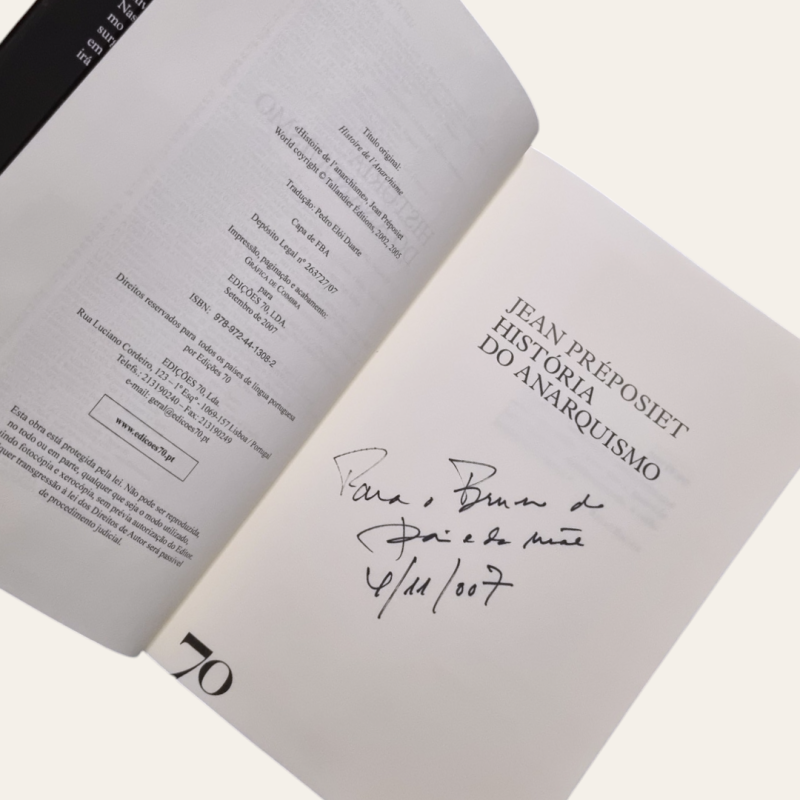 Nas
mo
surg
em
irá
Título original:
Histoire de l'Anarchisme
«Histoire de l'anarchisme», Jean Préposiet
World coyright © Tallandier Éditions, 2002, 2005
Tradução: Pedro Elói Duarte
Capa de FBA
Depósito Legal nº 263727/07
Impressão, paginação e acabamento:
GRÁFICA DE COIMBRA
para
EDIÇÕES 70, LDA.
Setembro de 2007
ISBN: 978-972-44-1308-2
Direitos reservados para todos os países de língua portuguesa
por Edições 70
EDIÇÕES 70, Lda.
Rua Luciano Cordeiro, 123 – 1º Esqº - 1069-157 Lisboa / Portugal
Telefs.: 213190240 – Fax: 213190249
e-mail: geral@edicoes70.pt
www.edicoes70.pt
Esta obra está protegida pela lei. Não pode ser reproduzida,
no todo ou em parte, qualquer que seja o modo utilizado,
indo fotocópia e xerocópia, sem prévia autorização do Editor.
quer transgressão à lei dos Direitos de Autor será passível
de procedimento judicial.
70
JEAN PRÉPOSIET
HISTÓRIA
DO ANARQUISMO
Para o Bruno do
Pai e da mãe
4/11/007